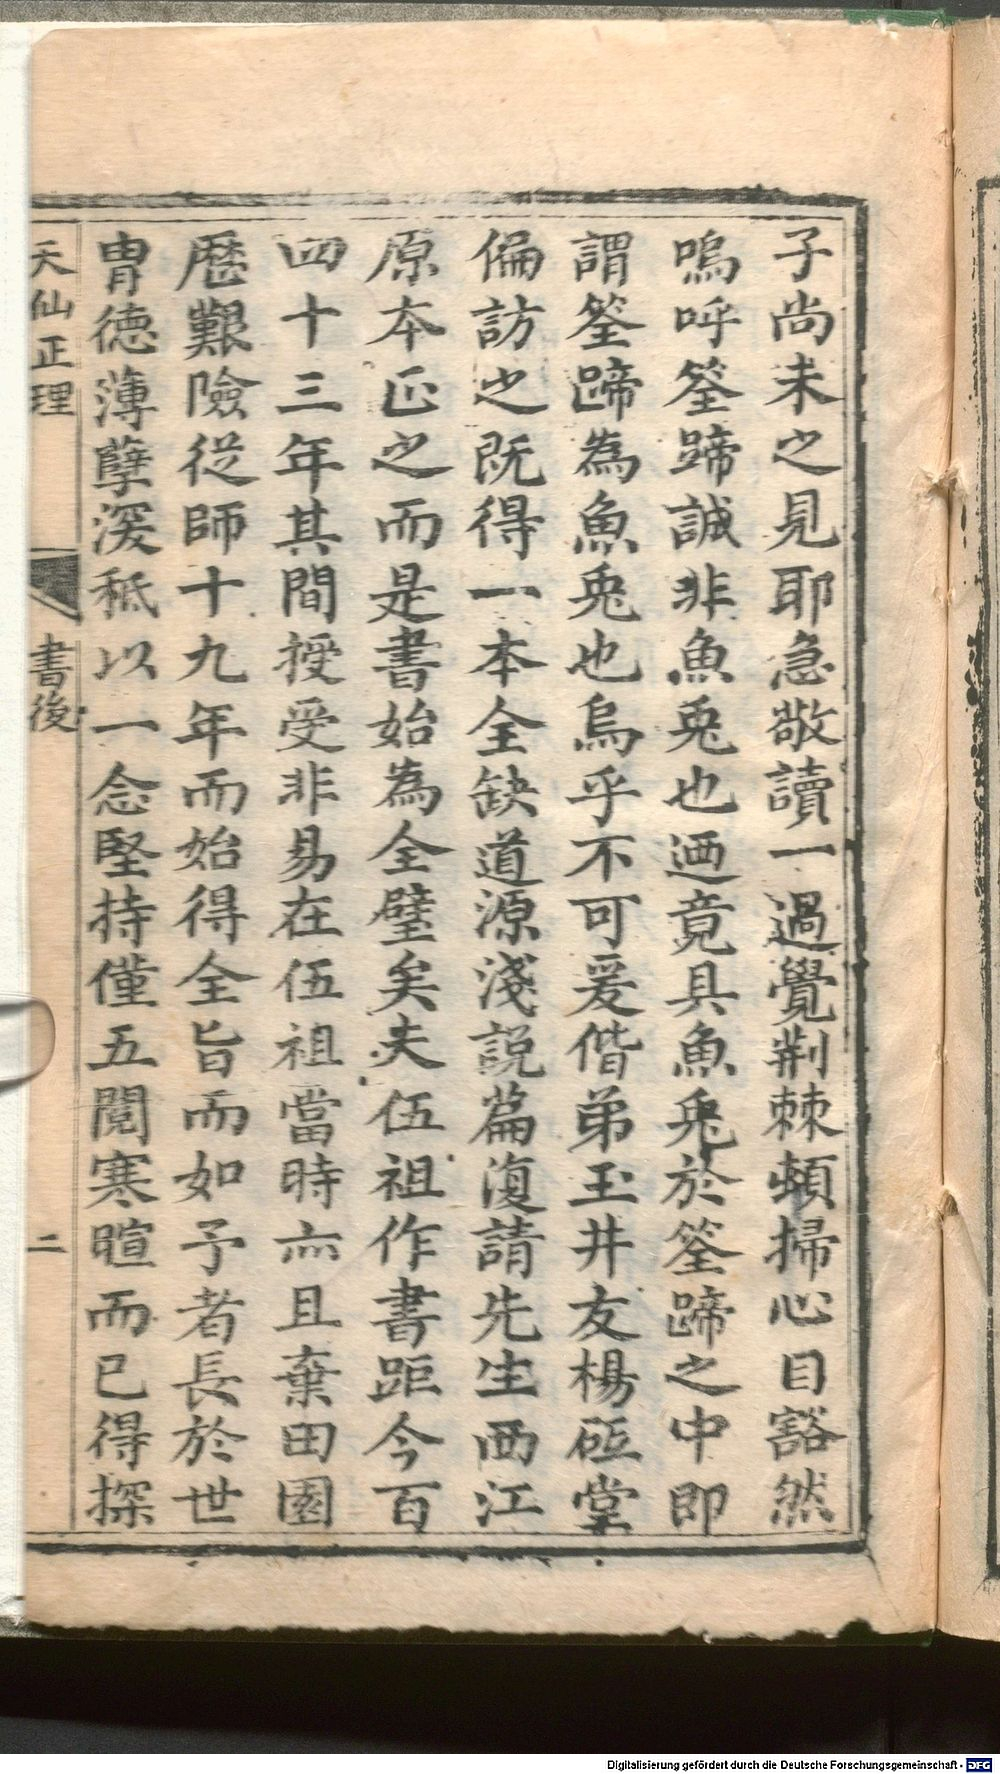 子尚未之見耶急敬讀一過覺荆棘頓掃心目豁然
嗚呼筌蹄誠非魚兎也迺竟具魚兎於筌蹄之中即
謂筌蹄為魚兎也烏乎不可爰偕弟玉井友楊硋堂
徧訪之既得一本全缺道源淺説篇復請先生西江
原本正之而是書始為全璧矣夫伍祖作書距今百
四十三年其間授受非易在伍祖當時亦且棄田園
歷艱險從師十九年而始得全旨而如予者長於世
胄德薄孽深秪以一念堅持僅五閲寒暄而已得探
天仙正理 書後 二
Digitalisierung gefördert durch die Deutsche Forschungsgemeinschaft - DFG